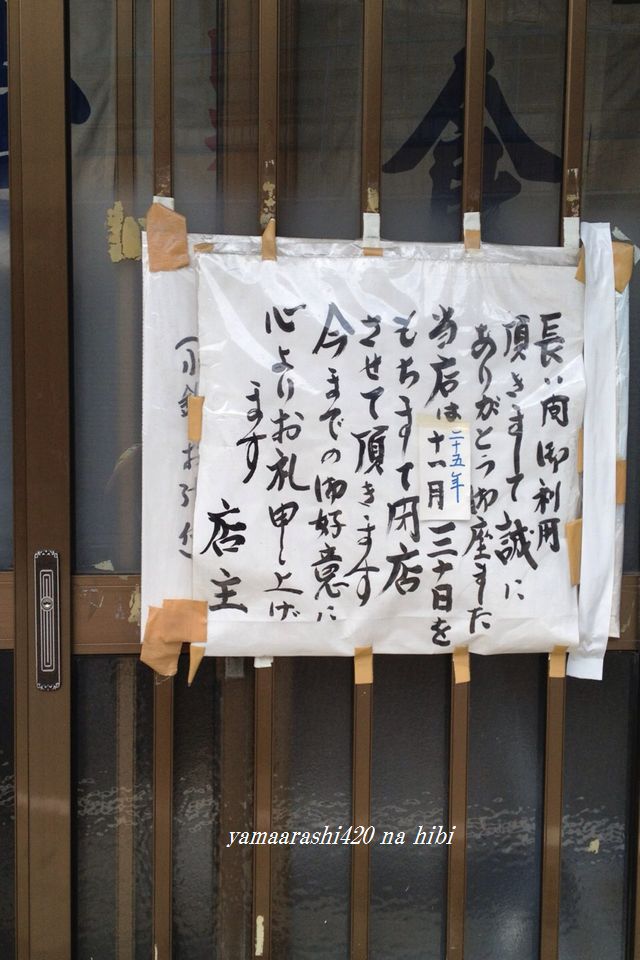 長い間御利用
頂きまして誠に
ありがとう御座ました
二十五年
当店は十一月三十日を
もちまして閉店
させて頂きます
今までの御好意に
心よりお礼申し上げ
ます
店主
食
yamaarashi420 na hibi